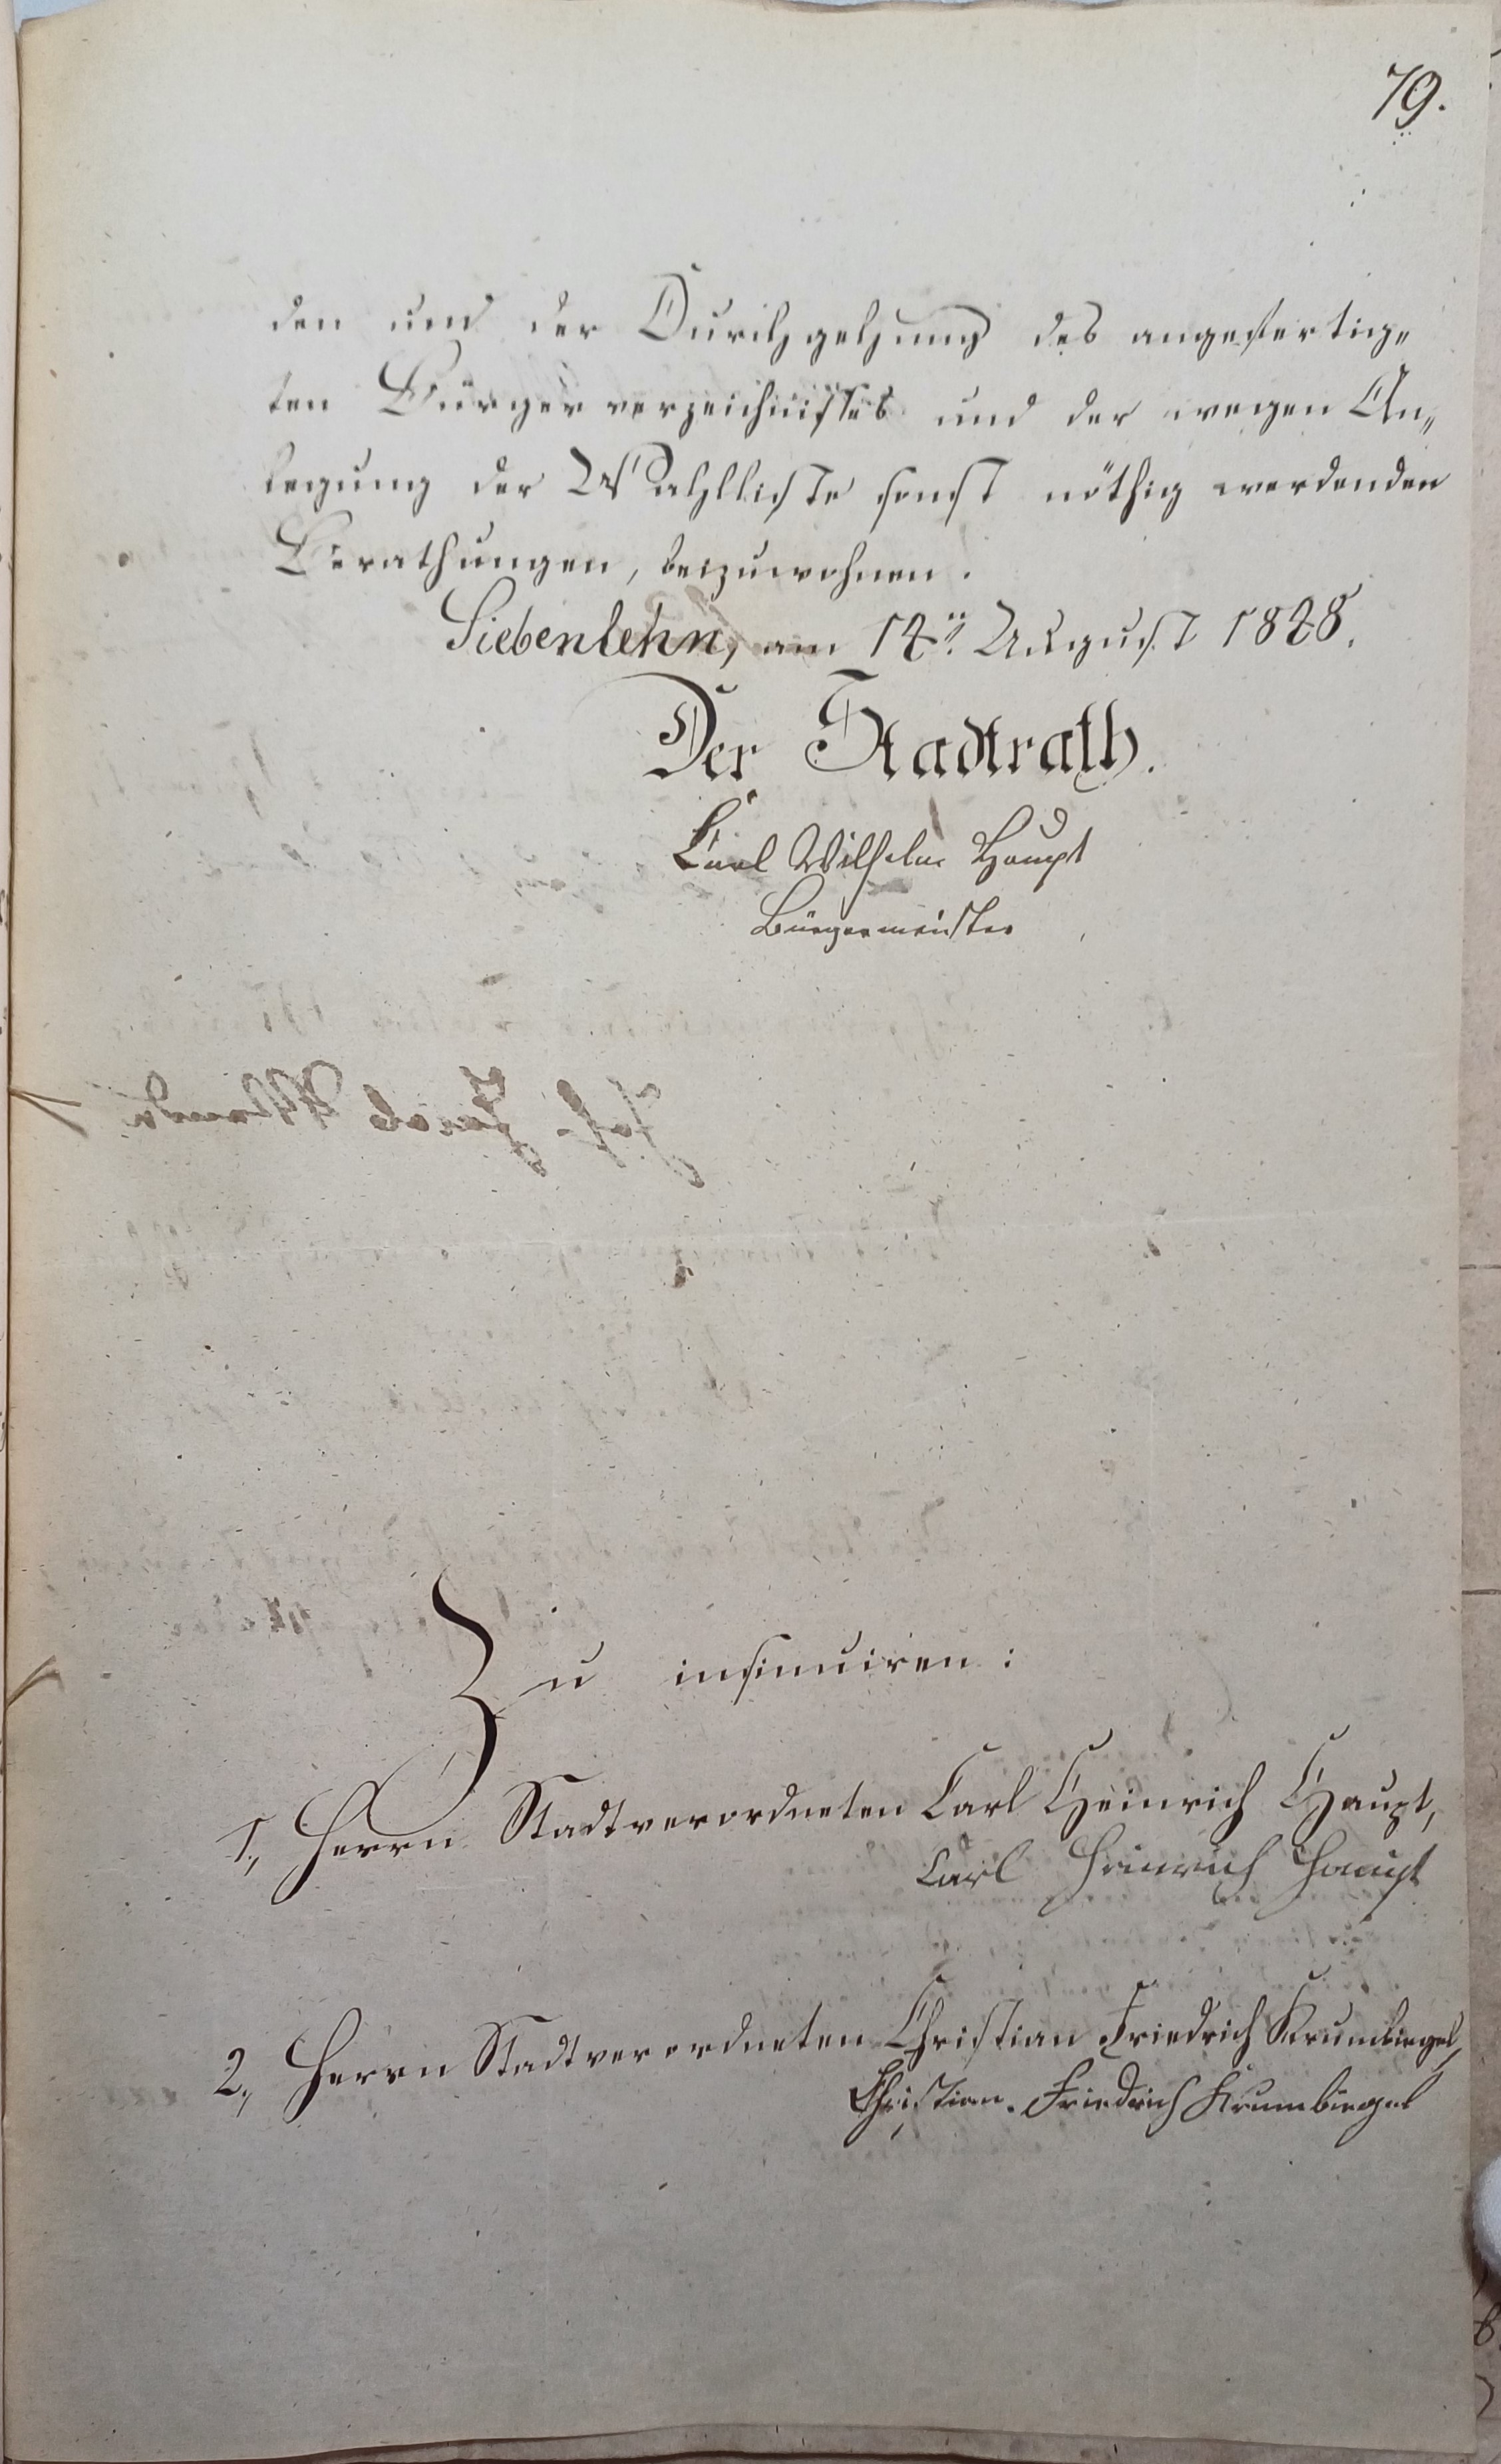 79.
den und der Durchgehung des angefertig„
ten Bürgerverzeichnißes und der wegen An„
legung der Wahlliste sonst nöthig werdenden
Berathungen, beizuwohnen.
Siebenlehn, am August
Der Stadtrath.
Carl Wilhelm Haupt
Bürgermeister
Zu insinuiren:
1., Herrn Stadtverordneten Carl Heinrich Haupt,
Carl Heinrich Haupt
2., Herrn Stadtverordneten Christian Friedrich Krumbiegel,
Christian Friedrich Krumbiegel